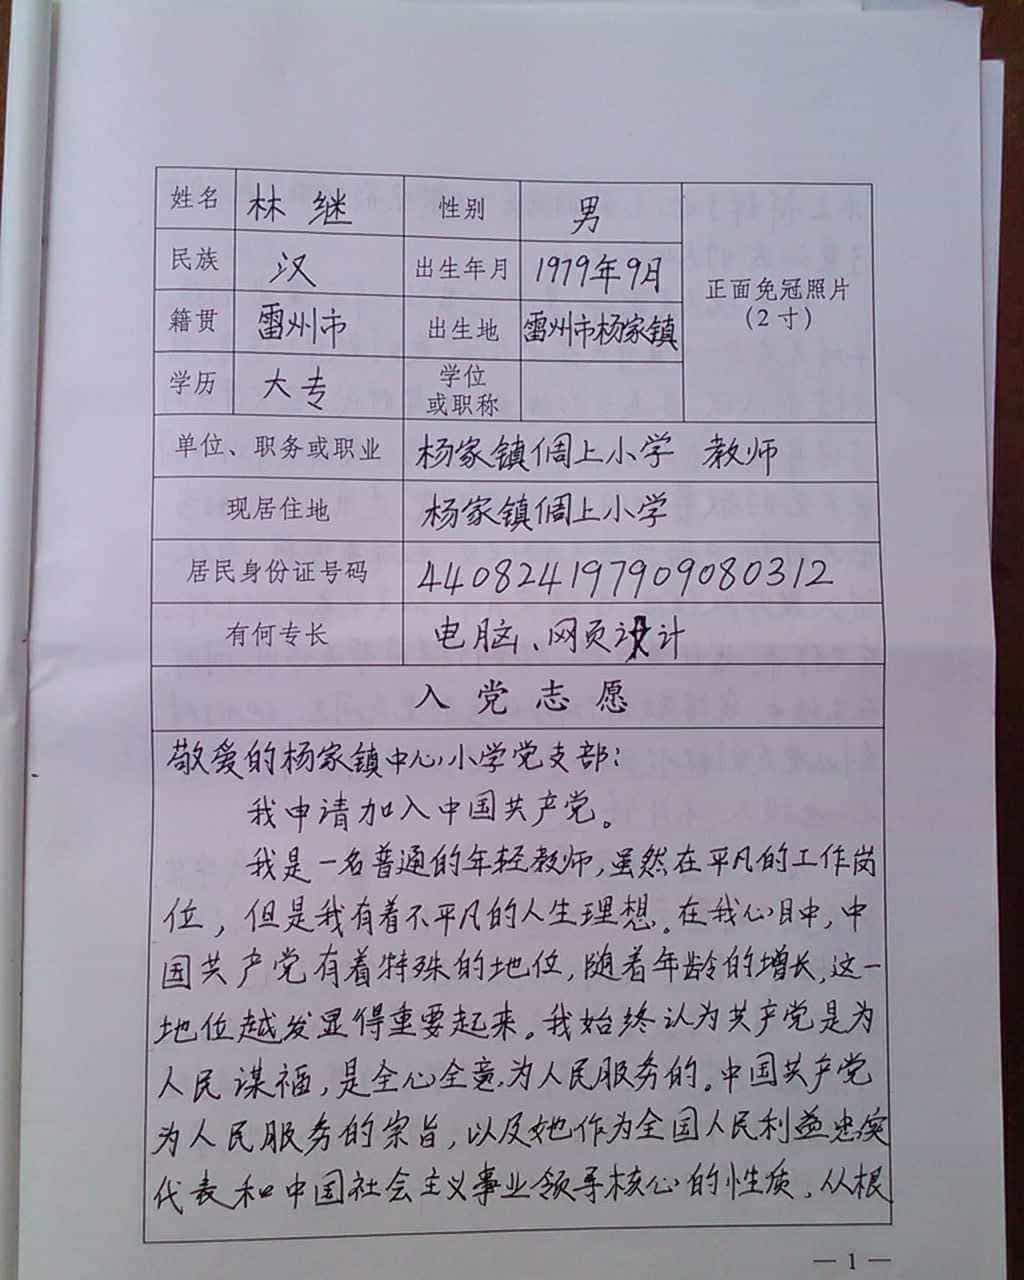 姓名 林继 性别 男
民族 汉 出生年月 1979年9月
正面免冠照片
(2寸)
籍贯 雷州市 出生地 雷州市杨家镇
学历 大专 学位
或职称
单位、职务或职业 杨家镇倜上小学 教师
现居住地 杨家镇倜上小学
居民身份证号码 440824197909080312
有何专长 电脑、网页设计
入党志愿
敬爱的杨家镇中心小学党支部:
我申请加入中国共产党。
我是一名普通的年轻教师,虽然在平凡的工作岗
位,但是我有着不平凡的人生理想。在我心目中,中
国共产党有着特殊的地位,随着年龄的增长,这一
地位越发显得重要起来。我始终认为共产党是为
人民谋福,是全心全意为人民服务的。中国共产党
为人民服务的宗旨,以及她作为全国人民利益忠实
代表和中国社会主义事业领导核心的性质,从根
— 1 —